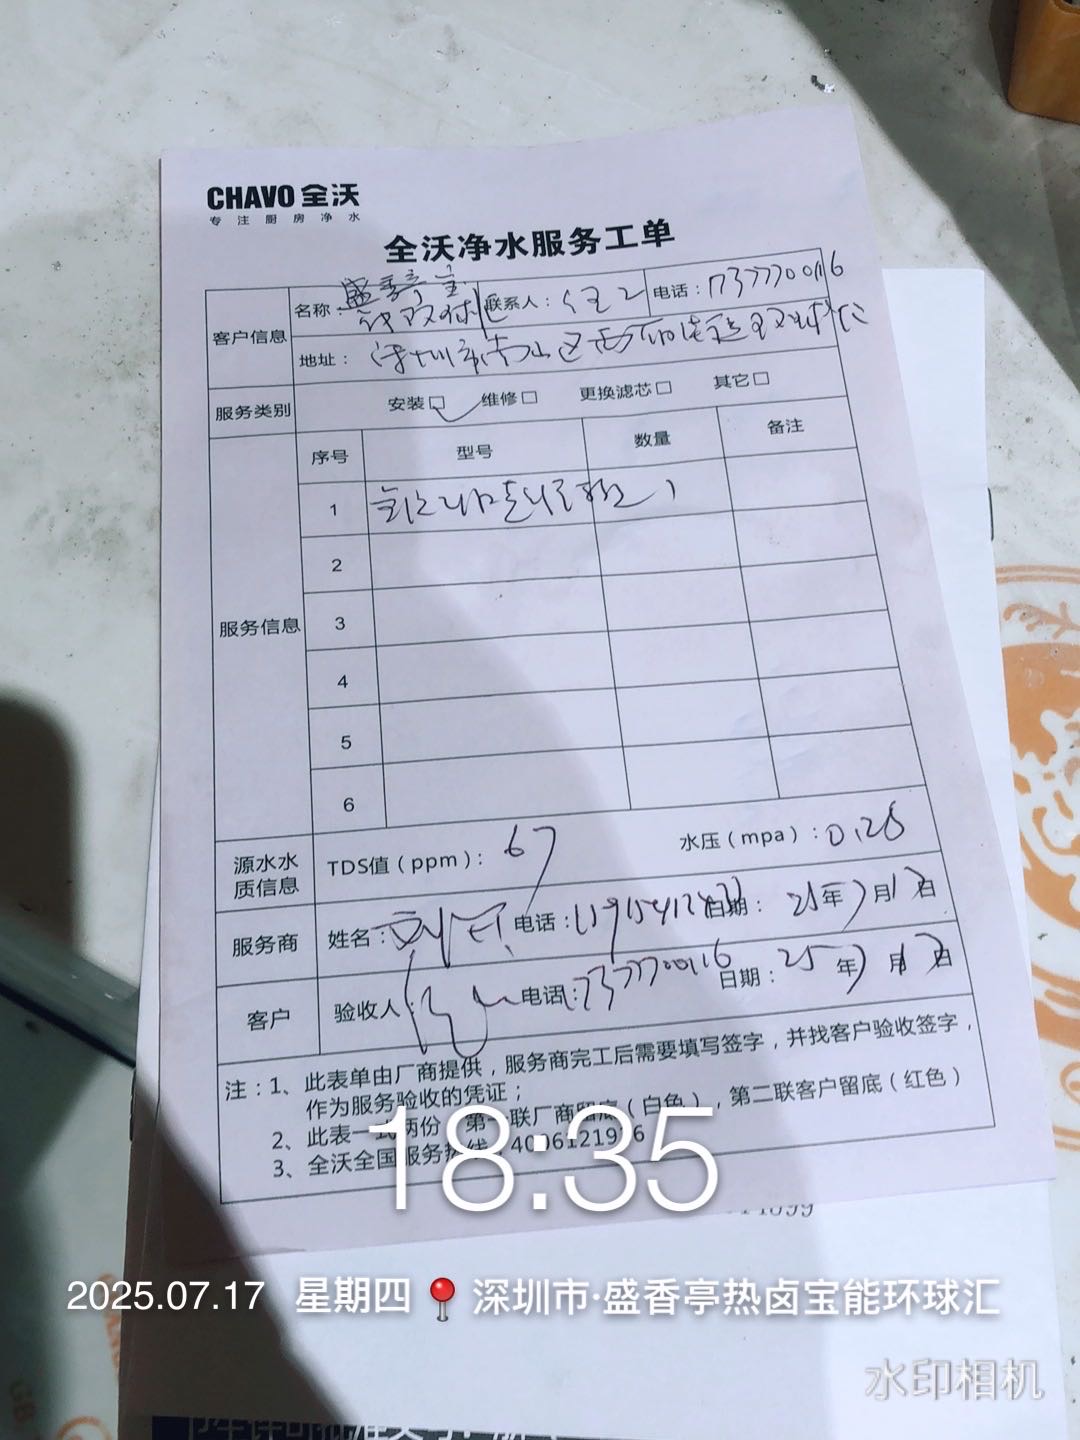 CHAVO 全沃
专注厨房净水
全沃净水服务工单
客户信息 名称：盛香亭宝能环球汇 联系人： 电话：17377700116
地址：深圳市南山区 环球汇
服务类别 安装☐✓ 维修☐ 更换滤芯☐ 其它☐
服务信息 序号 型号 数量 备注
1 1
2
3
4
5
6
源水水质信息 TDS值（ppm）：67 水压（mpa）：0.28
服务商 姓名： 电话： 日期：25年7月17日
客户 验收人： 电话：17377700116 日期：25年7月17日
注：1、此表单由厂商提供，服务商完工后需要填写签字，并找客户验收签字，
作为服务验收的凭证；
2、此表一式两份，第一联厂商留底（白色），第二联客户留底（红色）
3、全沃全国服务热线：
18:35
2025.07.17 星期四 深圳市·盛香亭热卤宝能环球汇
水印相机